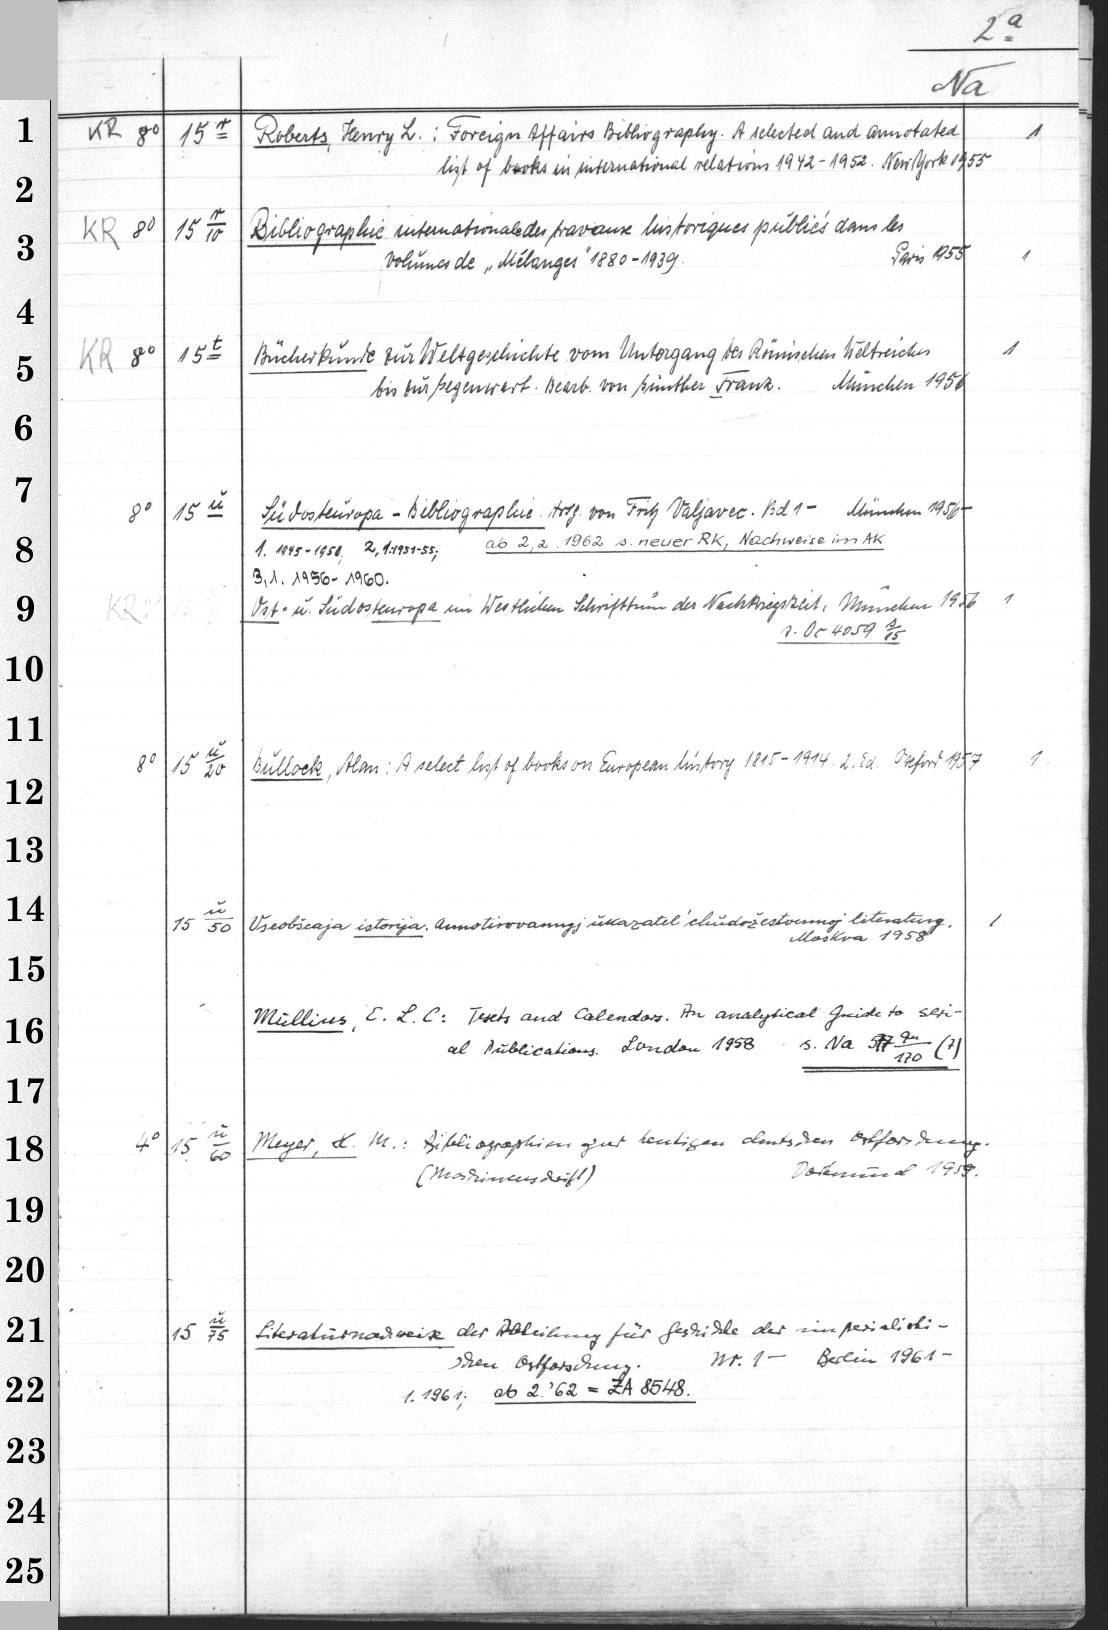 2a
Na
1 KR 8° 15 r Roberts, Henry L.: Foreign Affairs Bibliography. A selected and annotated 1
2 list of books in international relations 1942-1952. New York 1955
3 KR 8° 15 r/10 Bibliographie internationale des travaux historiques publiés dans les
volumes de „Mélanges" 1880-1939. Paris 1955 1
4
5 KR 8° 15 t Bücherkunde zur Weltgeschichte vom Untergang des Römischen Weltreiches 1
bis zur Gegenwart. Bearb. von Günther Franz. München 1956
6
7 8° 15 u Südosteuropa-Bibliographie. Hrsg. von Fritz Valjavec. Bd 1- München 1956-
8 1. 1945-1950, 2,1. 1951-55; ab 2,2. 1962 s. neuer RK, Nachweise im AK
3,1. 1956-1960.
9 KR Ost- u. Südosteuropa im Westlichen Schrifttum der Nachkriegszeit, München 1956 1
s. Oc 4059 s/15
10
11
8° 15 u/20 Bullock, Alan: A select list of books on European history 1815-1914. 2. Ed. Oxford 1957 1
12
13
14 15 u/50 Vseobščaja istorija. Annotirovannyj ukazatel' chudožestvennoj literatury. 1
Moskva 1958
15
16 Mullins, E. L. C: Texts and Calendars. An analytical Guide to seri-
al Publications. London 1958 s. Na 577 qu/170 (7)
17
18 4° 15 u/60 Meyer, K. M.: Bibliographien zur heutigen deutschen Ostforschung.
(Maschinenschrift) Dortmund 1959.
19
20
21 15 u/75 Literaturnachweise der Abteilung für Geschichte der imperialisti-
schen Ostforschung. Nr. 1- Berlin 1961-
22 1. 1961; ab 2.'62 = ZA 8548.
23
24
25